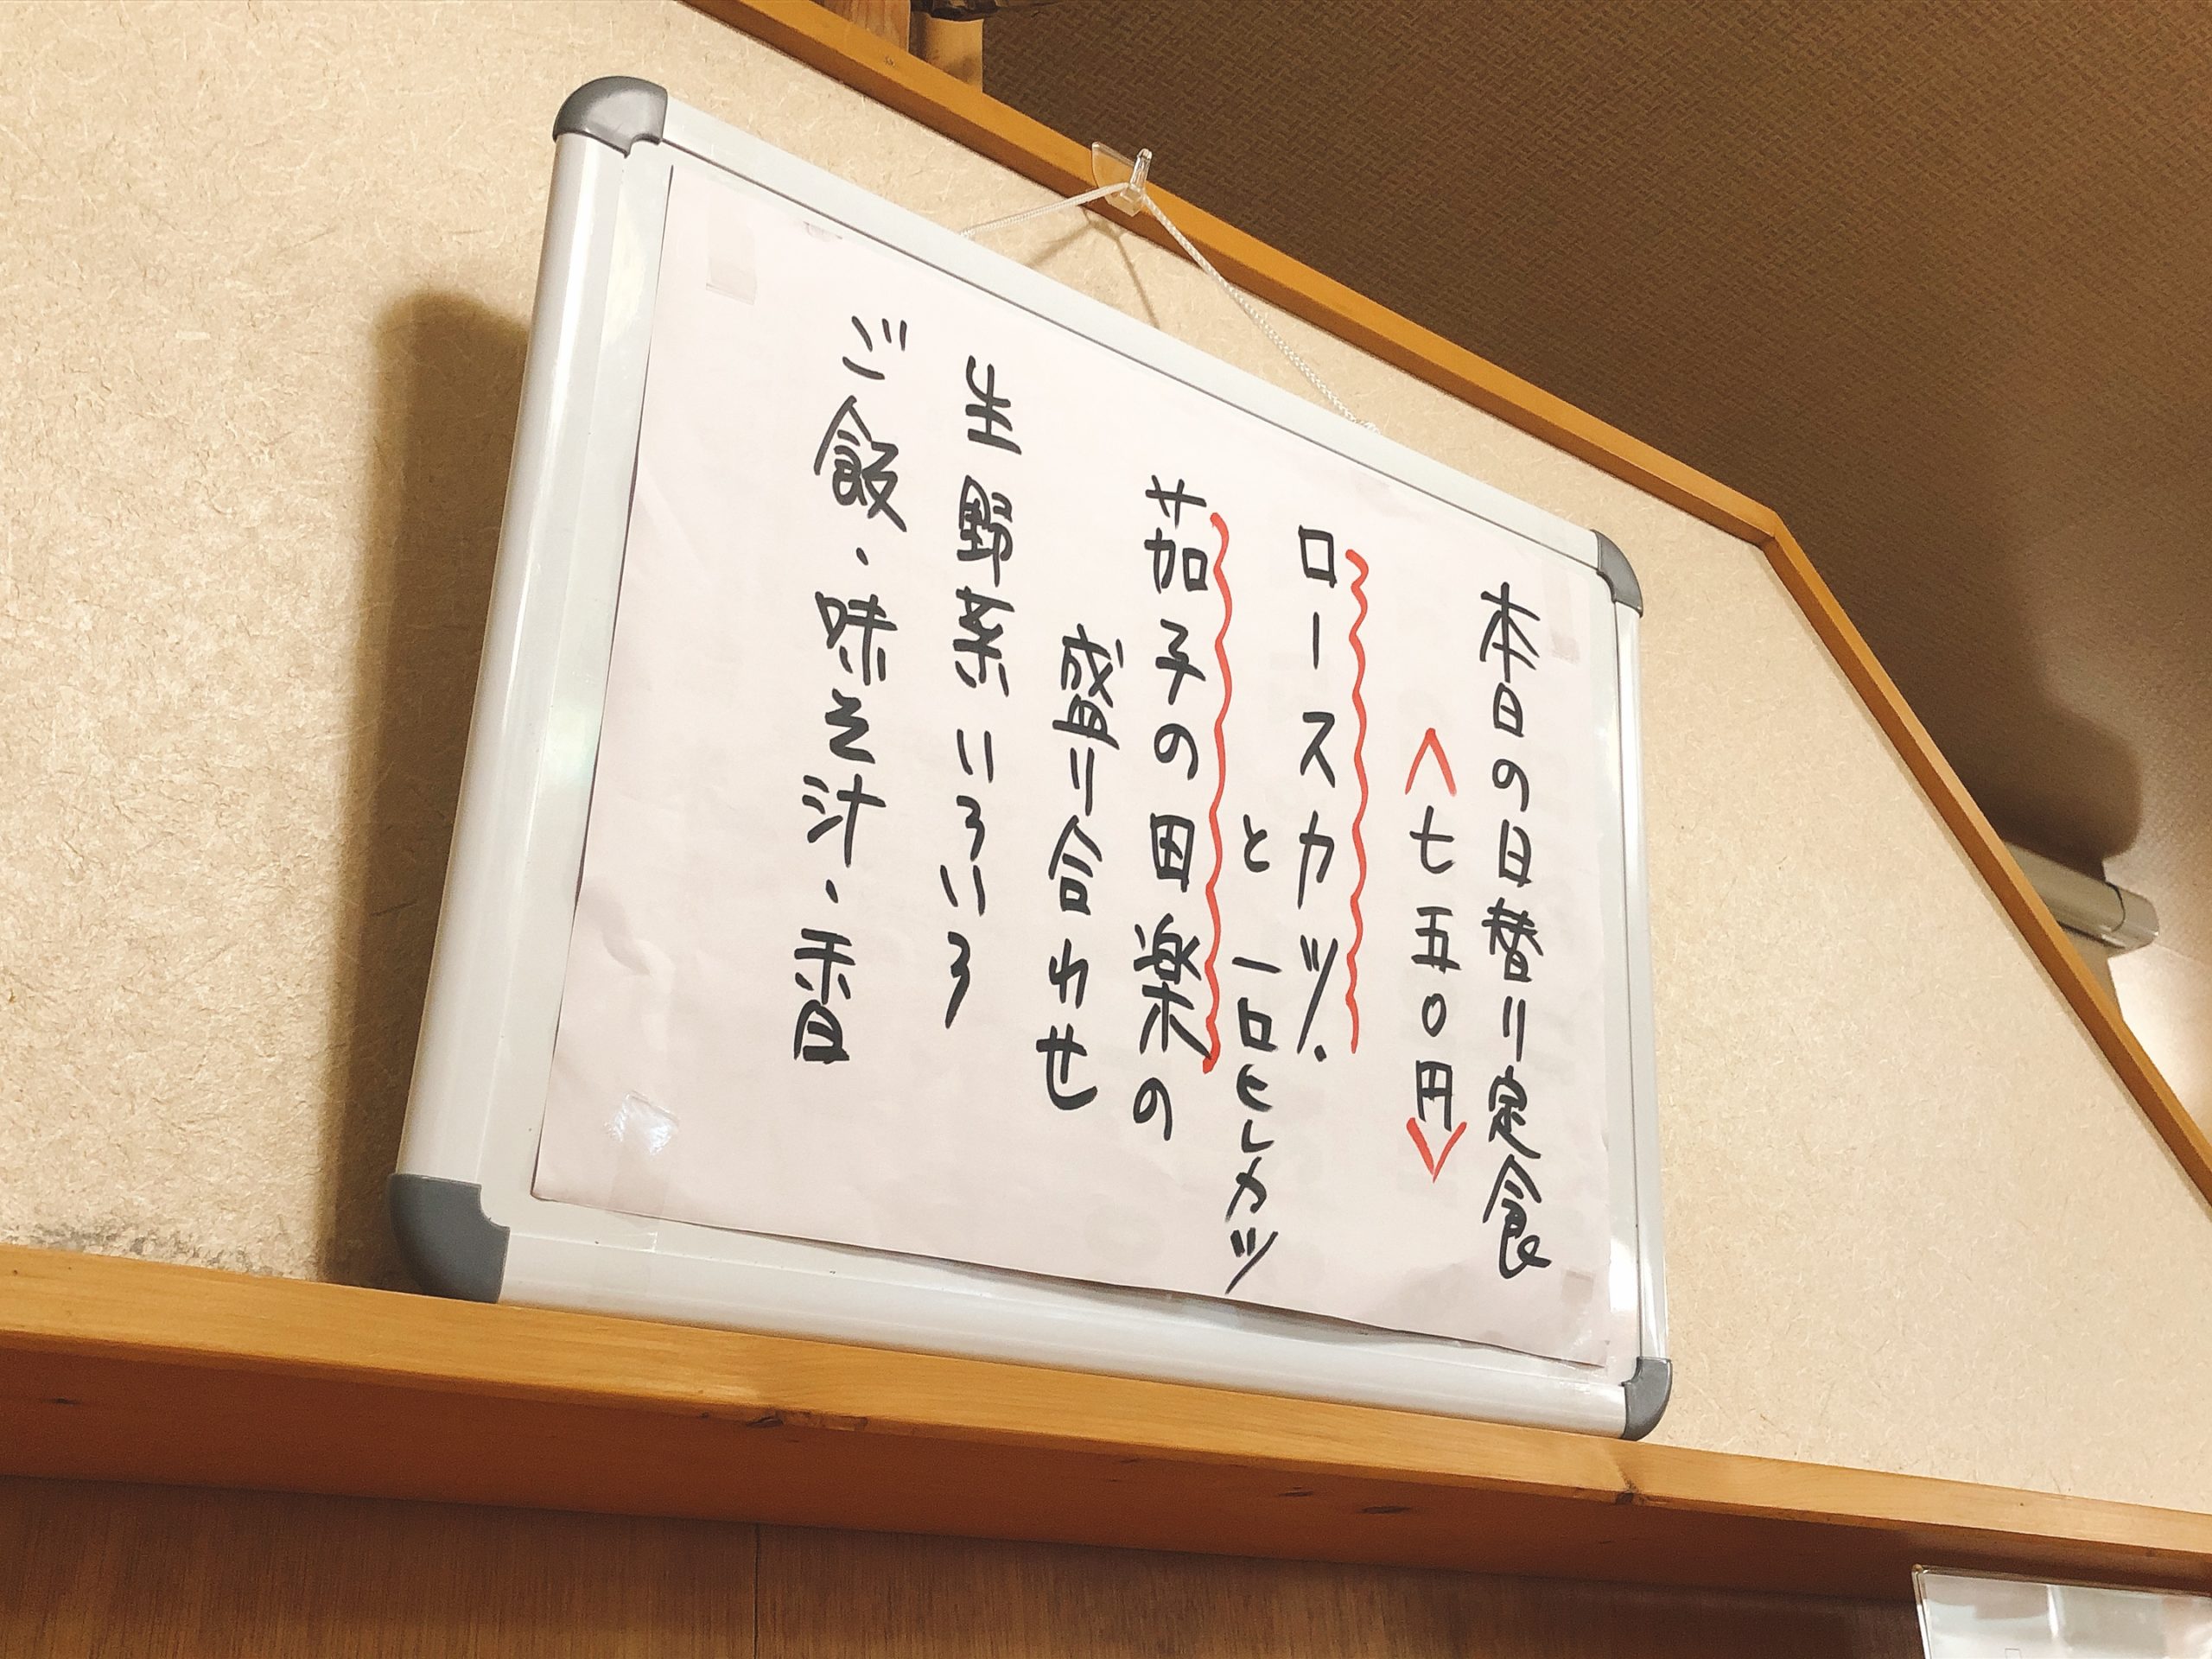 本日の日替り定食
〈七五〇円〉
ロースカツ・
と一口ヒレカツ
茄子の田楽の
盛り合わせ
生野菜いろいろ
ご飯・味そ汁・香